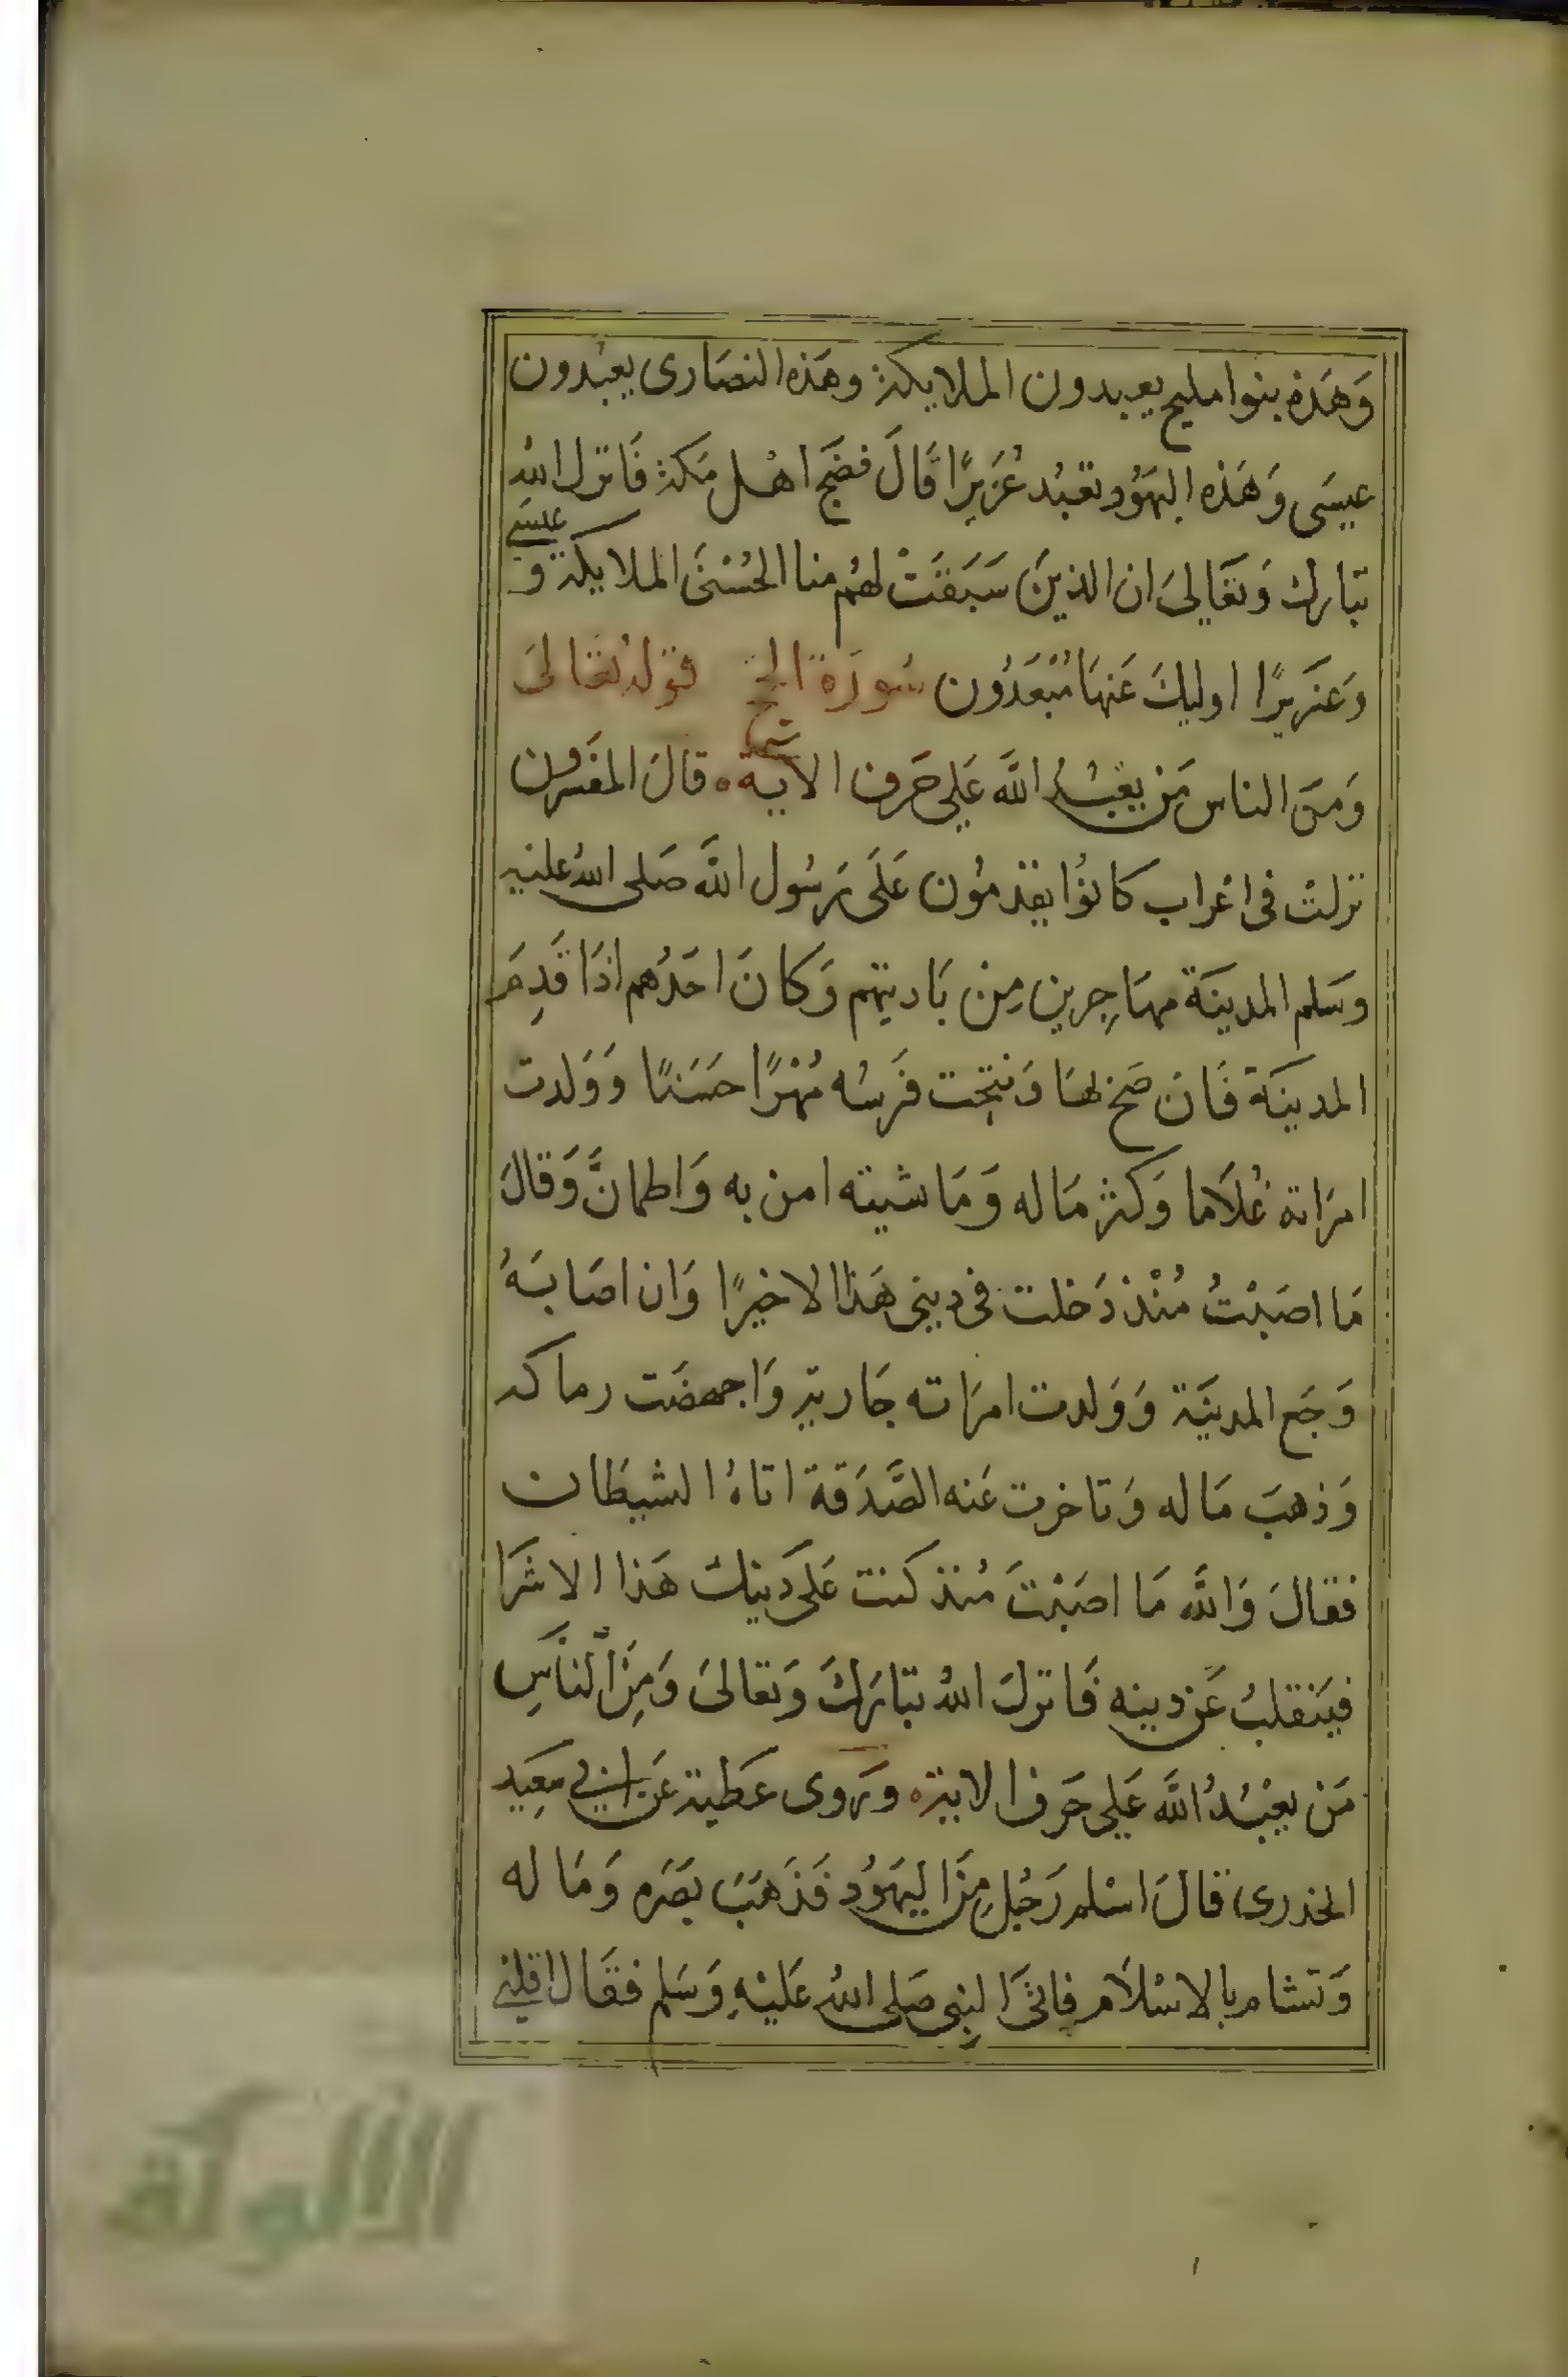 وَهَذِه بنوا مليح يعبدون الملايكة وهَذه النصَارى يعبُدون
عيسَى وَهَذه اليهَوُد تعبُد عُزَيرًا قَالَ فضَج اهْل مَكة فَانزل اللهُ
تبارك وَتعَالىَ ان الذينَ سَبَقَتْ لهُم منا الحُسْنىَ الملايكة و عيسَى
وَعَزيرًا اوليكَ عَنهَا مُبْعَدُون سُورَة الحج قولهُ تعَالىَ
وَمنَ الناس مَن يعْبُد اللَّه عَلى حَرف الآية قالَ المفسرون
نزلتْ فى اعْراب كانوُا يقدمُون عَلَى رَسُول اللَّه صَلى اللهُ عليْه
وسَلم المدينَة مهَاجِرين مِنْ بَاديتهم وَكانَ احَدُهم اذَا قَدِمَ
المدينَة فَان صَح بهَا وَنتجت فَرسُه مُهْرًا حسَنًا وَوَلدت
امرَاته غُلَاما وَكثر مَاله وَمَاشيته امن به وَاطمانَّ وَقالَ
مَا اصَبْتُ مُنْذ دَخلت فى ديني هَذا الا خيرًا وَان اصَابهُ
وَجَع المدينَة وَوَلدت امرَاته جَارية وَاجهضَت رماكه
وَذهبَ مَاله وَتاخرت عَنه الصَّدَقة اتاهُ الشيطَان
فقالَ وَاللَّه مَا اصَبْتَ مُنذ كنت عَلى دَينك هَذا الا شرَا
فيَنقلبُ عَن دينه فَانزلَ اللهُ تبارَكَ وَتعَالىَ وَمِنَ النَّاسِ
مَنْ يعْبُدُ اللَّه عَلى حَرف الاية وَرَوى عَطية عَن ابي سَعِيد
الخدرى قالَ اسْلم رَجُل مِنَ اليهَوُد فَذهَبَ بصَره وَمَاله
وَتشام بالاسْلَام فاتىَ النبِى صَلى اللهُ عَليْهِ وَسَلم فقَال اقلني
الألوكة